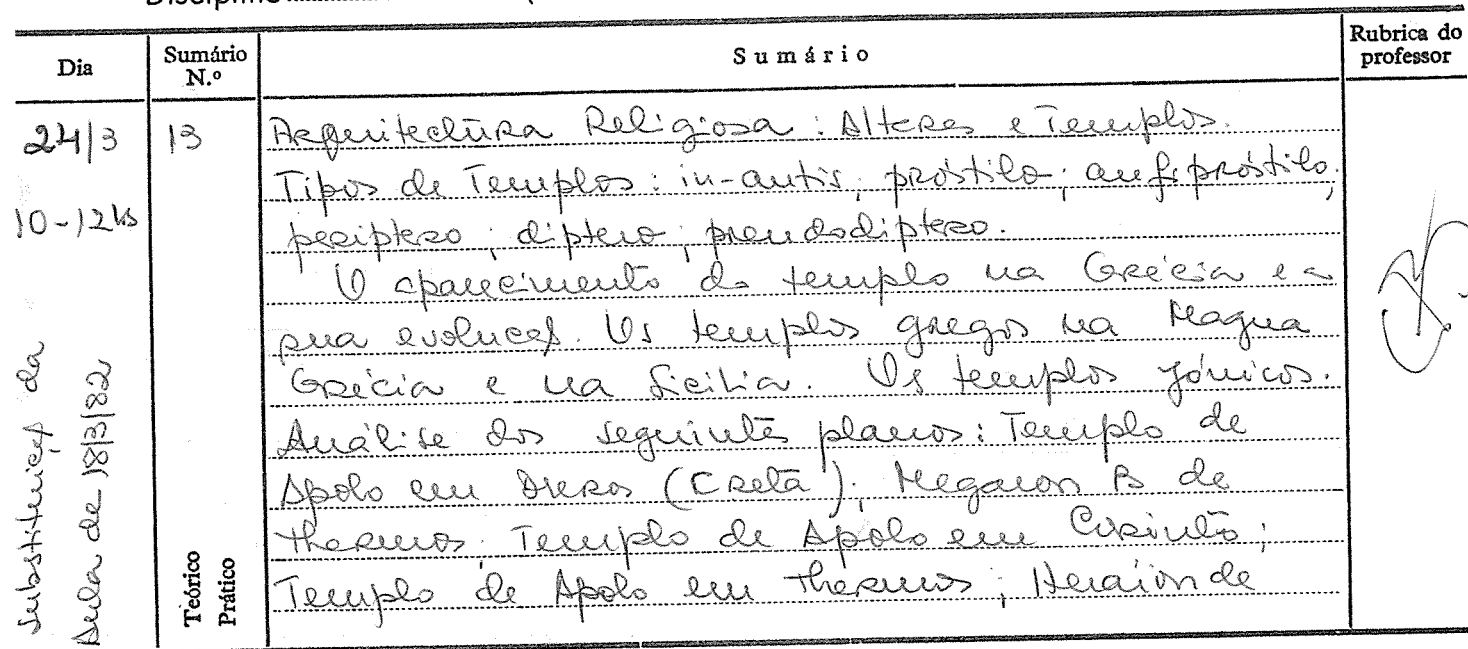 Disciplina
Dia
Sumário N.º
Sumário
Rubrica do professor
24/3
13
10-12hs
Substituição da
Aula de 18/3/82
Teórico
Prático
Arquitectura Religiosa: Altares e Templos.
Tipos de Templos: in-antis; próstilo; anfipróstilo;
periptero; diptero; pseudodiptero.
O aparecimento do templo na Grécia e a
sua evolução. Os templos gregos na Magna
Grécia e na Sicilia. Os templos jónicos.
Análise dos seguintes planos: Templo de
Apolo em Dreros (Creta); Megaron B de
Thermos. Templo de Apolo em Corinto;
Templo de Apolo em Thermos; Heraion de